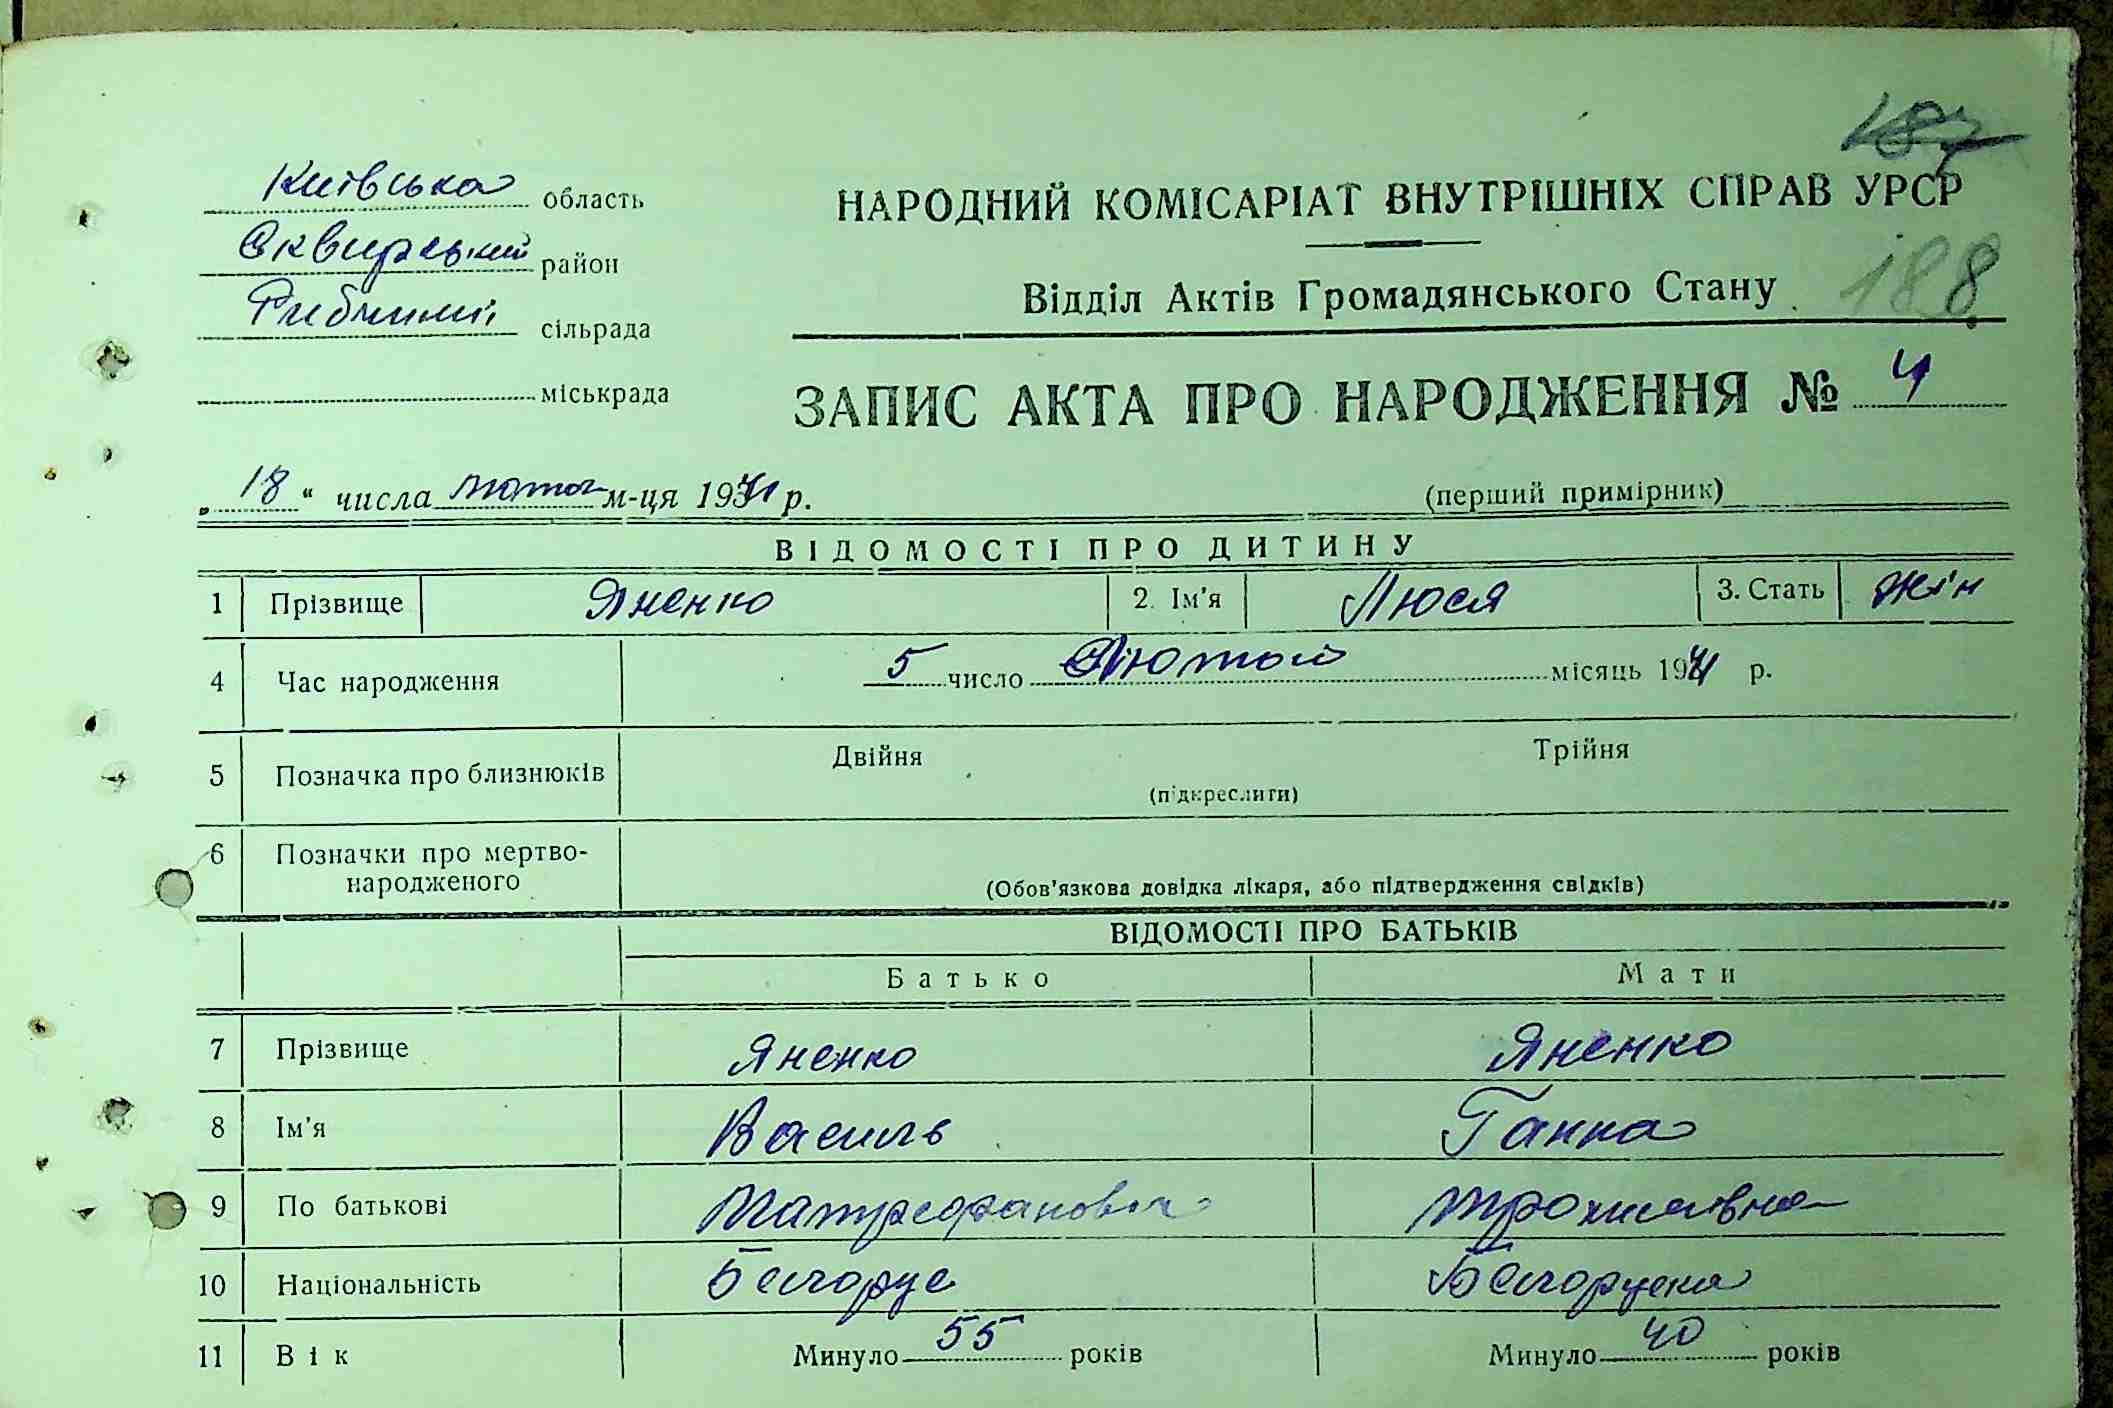 187
Київська область
НАРОДНИЙ КОМІСАРІАТ ВНУТРІШНІХ СПРАВ УРСР
Сквирський район
Відділ Актів Громадянського Стану 188
сільрада
міськрада
ЗАПИС АКТА ПРО НАРОДЖЕННЯ № 4
„18“ числа м-ця 1941 р.
(перший примірник)
ВІДОМОСТІ ПРО ДИТИНУ
1 Прізвище Яненко 2. Ім'я Люся 3. Стать жін
4 Час народження 5 число Лютой місяць 1941 р.
5 Позначка про близнюків Двійня Трійня
(підкреслити)
6 Позначки про мертво-
народженого
(Обов'язкова довідка лікаря, або підтвердження свідків)
ВІДОМОСТІ ПРО БАТЬКІВ
Батько Мати
7 Прізвище Яненко Яненко
8 Ім'я Василь Ганна
9 По батькові
10 Національність Белорус Белоруска
11 Вік Минуло 55 років Минуло 40 років